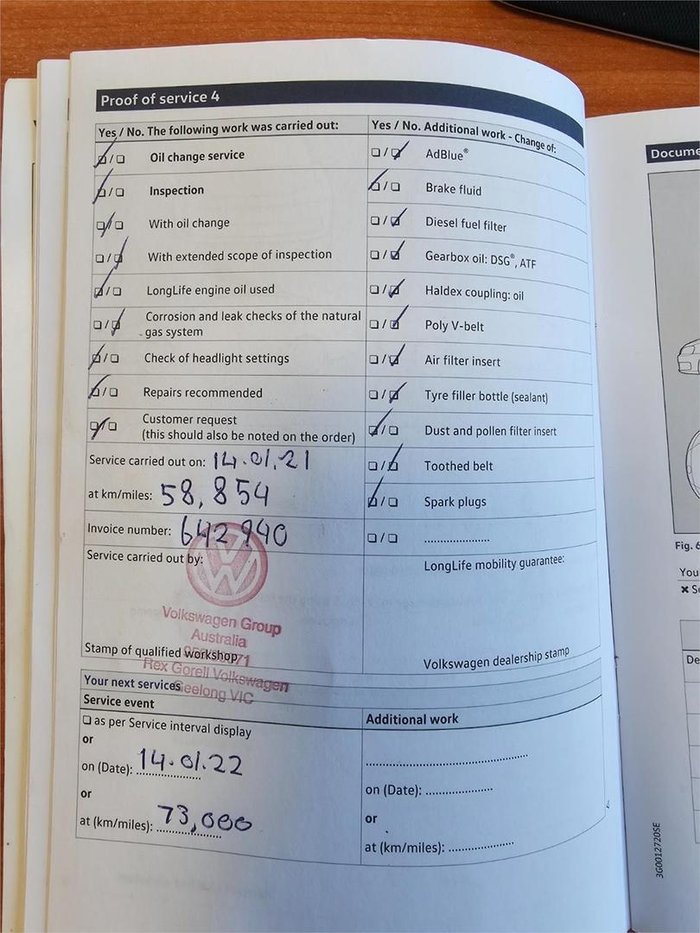 Proof of service 4
Yes / No. The following work was carried out:
Oil change service
Inspection
With oil change
With extended scope of inspection
LongLife engine oil used
Corrosion and leak checks of the natural
gas system
Check of headlight settings
Repairs recommended
Customer request
(this should also be noted on the order)
Service carried out on: 14.01.21
at km/miles: 58,854
Invoice number: 642940
Service carried out by:
Volkswagen Group
Australia
Stamp of qualified workshop
Rex Gorell Volkswagen
Geelong VIC
Yes / No. Additional work - Change of:
AdBlue®
Brake fluid
Diesel fuel filter
Gearbox oil: DSG®, ATF
Haldex coupling: oil
Poly V-belt
Air filter insert
Tyre filler bottle (sealant)
Dust and pollen filter insert
Toothed belt
Spark plugs
....................
LongLife mobility guarantee:
Volkswagen dealership stamp
Your next services
Service event
as per Service interval display
or
on (Date): 14.01.22
or
at (km/miles): 73,000
Additional work
on (Date): ....................
or
at (km/miles): ....................
3G0012720SE
Docume
Fig. 6
You
De